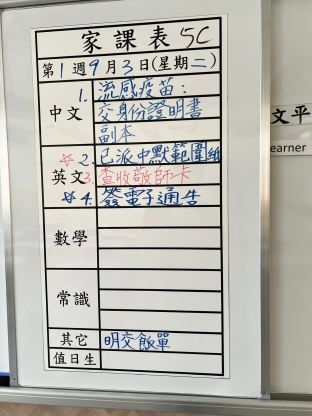 家課表 5C
第1週9月3日(星期二)
1. 流感疫苗：
中文 交身份證明書
副本
☆2. 已派中默範圍紙
英文 3. 查收敬師卡
☆4. 簽電子通告
數學
常識
其它 明交飯單
值日生
文平
earner